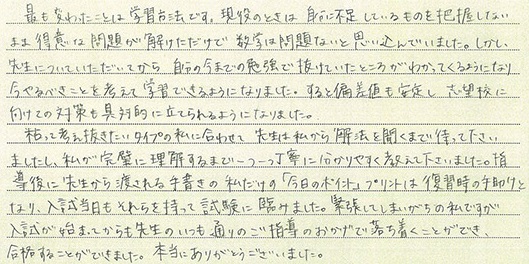 最も変わったことは学習方法です。現役のときは自分に不足しているものを把握しない
まま得意な問題が解けただけで数学は問題ないと思い込んでいました。しかし、
先生についていただいてから自分の今までの勉強で抜けていたところがわかってくるようになり
今やるべきことを考えて学習できるようになりました。すると偏差値も安定し志望校に
向けての対策も具体的に立てられるようになりました。
粘って考え抜きたいタイプの私に合わせて先生は私から解法を聞くまで待って下さい
ましたし、私が完璧に理解するまで一つ一つ丁寧に分かりやすく教えて下さいました。指
導後に先生から渡される手書きの私だけの「今日のポイント」プリントは復習時の手助けと
なり、入試当日もそれらを持って試験に臨みました。緊張してしまいがちの私ですが
入試が始まってからも先生のいつも通りのご指導のおかげで落ち着くことができ、
合格することができました。本当にありがとうございました。